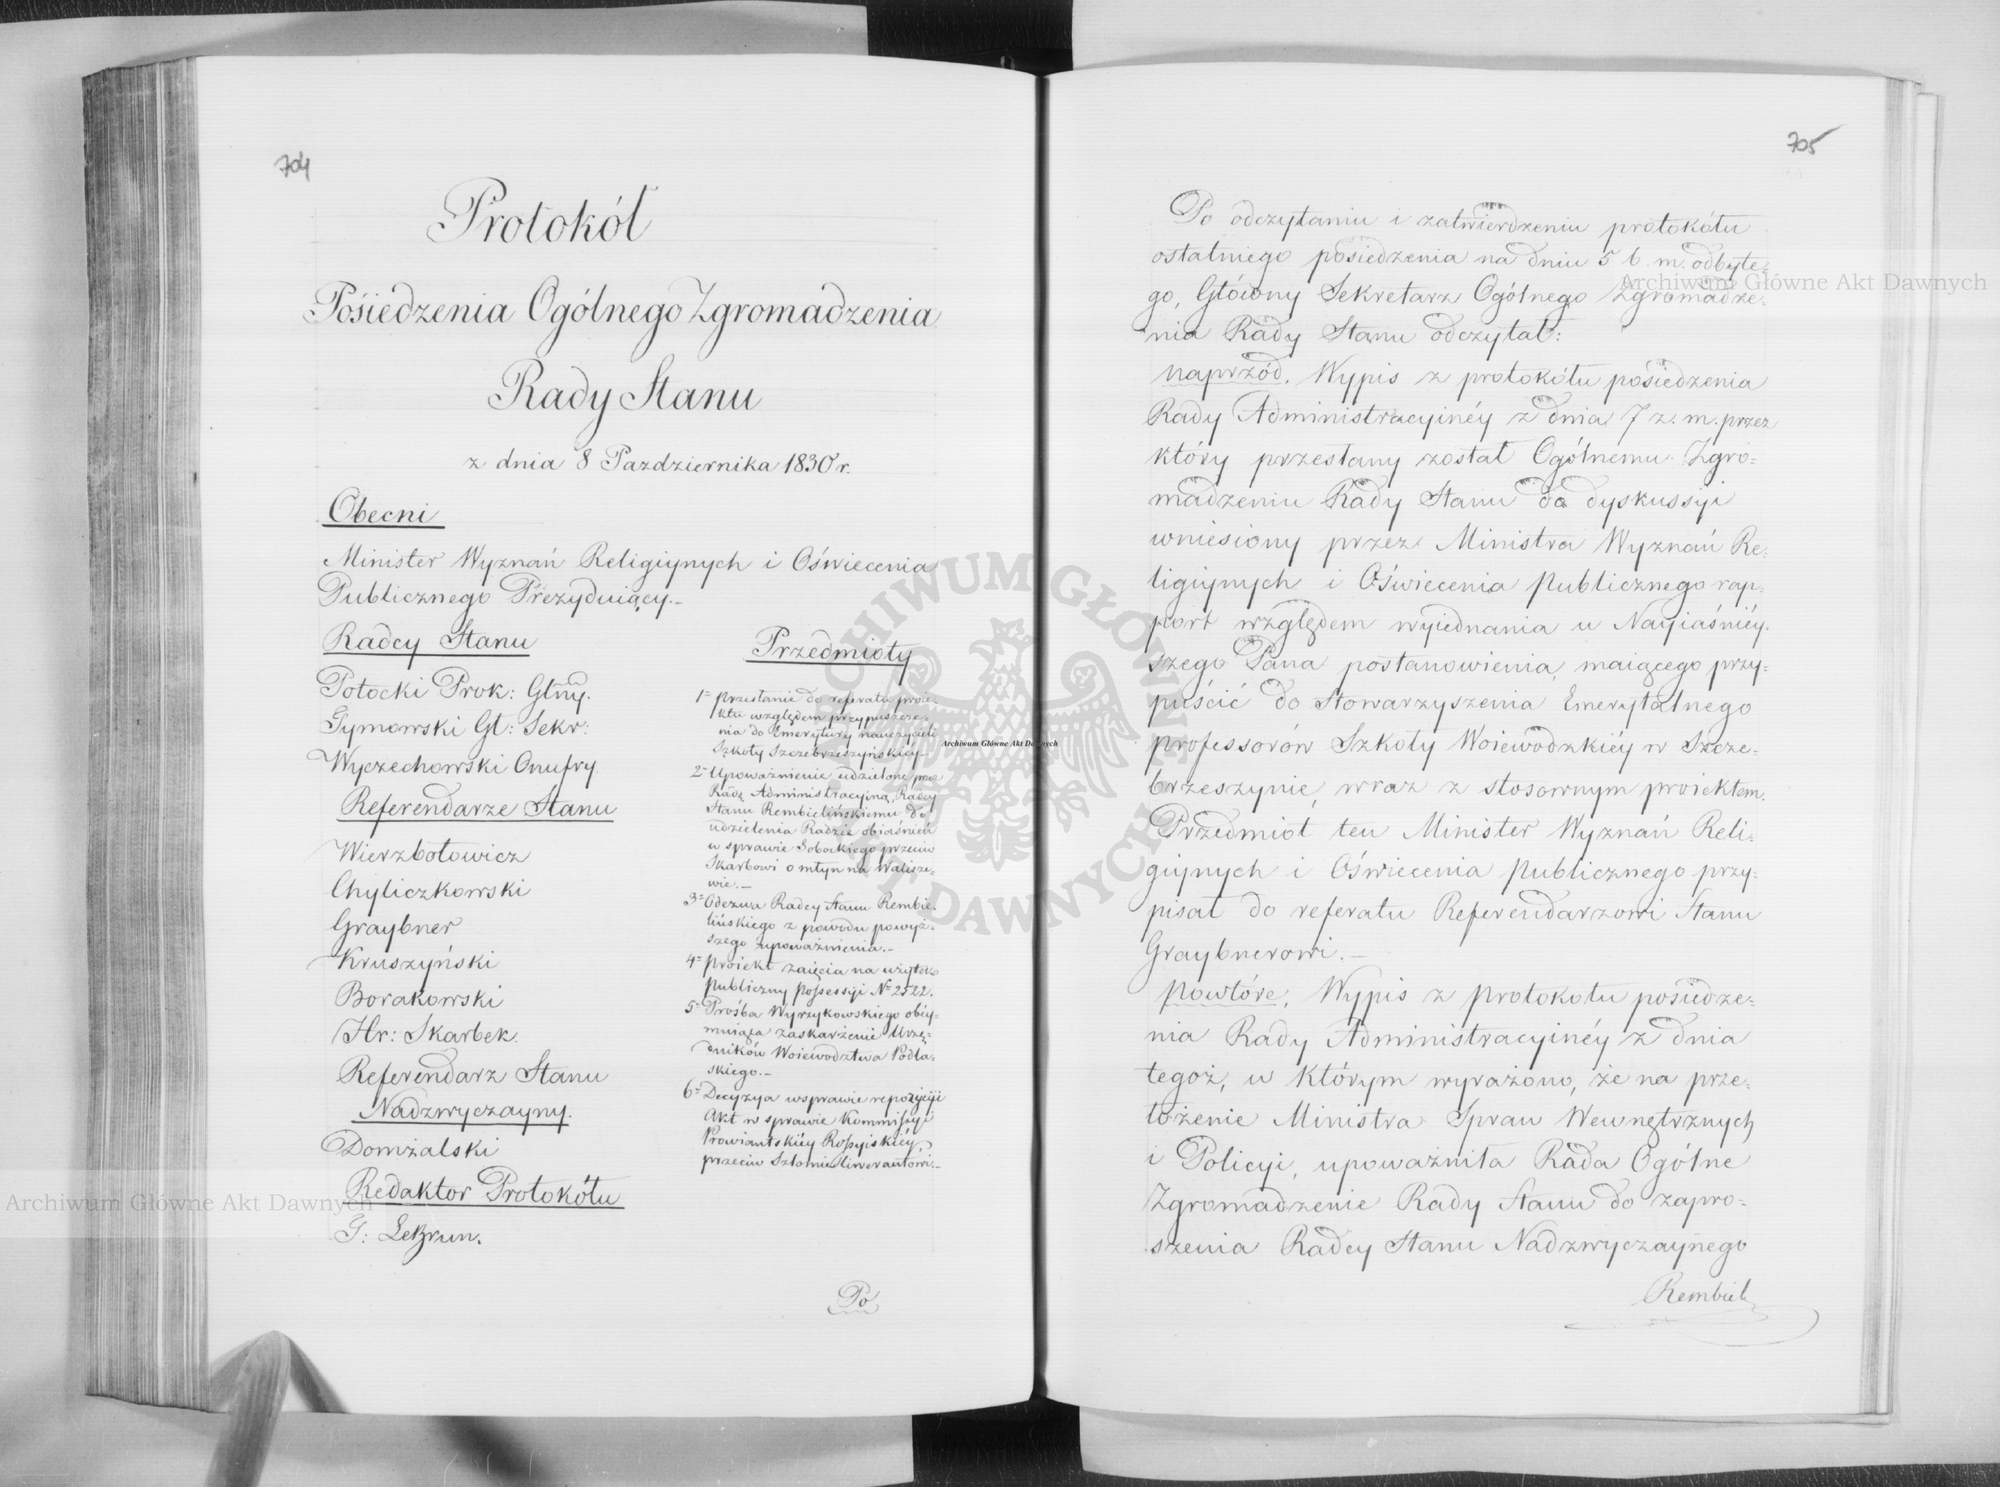 704
Protokół
Posiedzenia Ogólnego Zgromadzenia
Rady Stanu
z dnia 8 Pazdziernika 1830 r.
Obecni
Minister Wyznań Religiynych i Oświecenia
Publicznego Prezyduiący.-
Radcy Stanu
Potocki Prok: Głny.
Tymowski Gł: Sekr:
Wyczechowski Onufry
Referendarze Stanu
Wierzbołowicz
Chyliczkowski
Graybner
Kruszyński
Borakowski
Hr: Skarbek.
Referendarz Stanu
Nadzwyczayny.
Domżalski
Redaktor Protokółu
J: LeBrun.
Przedmioty
1= Przesłanie do referatu proie-
ktu względem przypuszcze-
nia do Emerytury nauczycieli
Szkoły Szczebrzeszyńskiey
2= Upoważnienie udzielone przez
Radę Administracyiną, Radcy
Stanu Rembielińskiemu do
udzielenia Radzie obiaśnień
w sprawie Sobockiego przeciw
Skarbowi o młyn na Walisze-
wie.-
3= Odezwa Radcy Stanu Rembie-
lińskiego z powodu powyż-
szego upoważnienia.-
4= Proiekt zaięcia na użytek
Publiczny Possessyi Nº 2522.
5= Prośba Wyrzykowskiego obey-
muiąca zaskarżenie Urzę-
dników Woiewództwa Podla-
skiego.-
6= Decyzya w sprawie repozycyi
Akt w sprawie Kommissyi
Prowiantskiéy Rossyiskiéy
przeciw Szlomie liwerantowi.-
Po
705
Po odczytaniu i zatwierdzeniu protokółu
ostatniego posiedzenia na dniu 5 b. m. odbyte-
go, Główny Sekretarz Ogólnego Zgromadze-
nia Rady Stanu odczytał:
naprzód. Wypis z protokółu posiedzenia
Rady Administracyinéy z dnia 7 z. m. przez
który przesłany został Ogólnemu Zgro-
madzeniu Rady Stanu do dyskussyi
wniesiony przez Ministra Wyznań Re-
ligiynych i Oświecenia Publicznego rap-
port względem wyiednania u Nayiaśniéy-
szego Pana postanowienia, maiącego przy-
puścić do Stowarzyszenia Emerytalnego
professorów Szkoły Woiewódzkiéy w Szcze-
brzeszynie, wraz z stosownym proiektem.
Przedmiot ten Minister Wyznań Reli-
giynych i Oświecenia Publicznego przy-
pisał do referatu Referendarzowi Stanu
Graybnerowi.-
powtóre, Wypis z Protokołu posiedze-
nia Rady Administracyinéy z dnia
tegoż, w którym wyrażono, że na prze-
łożenie Ministra Spraw Wewnętrznych
i Policyi, upoważniła Rada Ogólne
Zgromadzenie Rady Stanu do zapro-
szenia Radcy Stanu Nadzwyczaynego
Rembiel
Archiwum Główne Akt Dawnych
Archiwum Główne Akt Dawnych
Archiwum Główne Akt Dawnych
ARCHIWUM GŁÓWNE AKT DAWNYCH